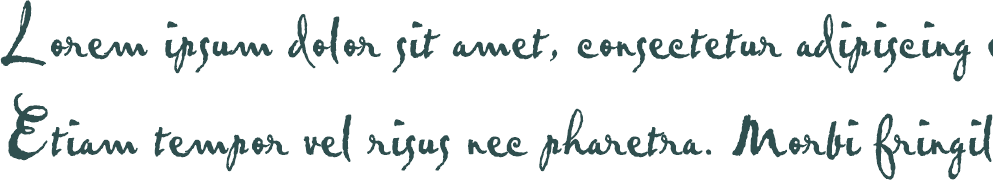 Lorem ipsum dolor sit amet, consectetur adipiscing
Etiam tempor vel risus nec pharetra. Morbi fringil